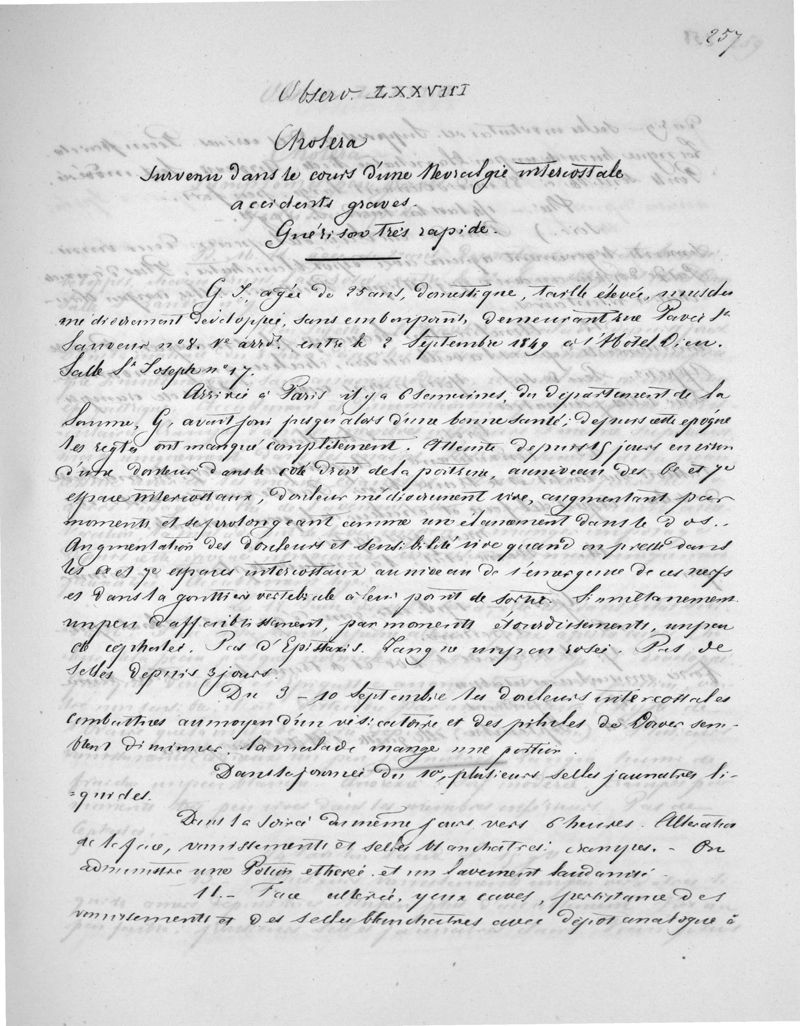 257
Observ. LXXVIII
Cholera
Survenu dans le cours d'une Nevralgie intercostale
accidents graves.
Guérison très rapide.
G. J., agée de 25 ans, domestique, taille élevée, muscles
médiocrement développés, sans embonpoint, demeurant rue Pavée St
Sauveur no 8. Ve arrdt. entre le 2 Septembre 1849 à l'Hotel Dieu.
Salle St Joseph no 17.
Arrivée à Paris il y a 6 semaines, du département de la
Somme, G, avait joui jusqu'alors d'une bonne santé; depuis cette époque
les règles ont manqué complètement. Atteinte depuis 15 jours environ
d'une douleur dans le coté droit de la poitrine, au niveau des 6e et 7e
espace intercostaux, douleur médiocrement vive, augmentant par
moments et se prolongeant comme un élancement dans le dos..
Augmentation des douleurs et sensibilité vive quand on presse dans
les 6e et 7e espaces intercostaux au niveau de l'émergence de ces nerfs
et dans la gouttière vertebrale à leur point de sortie. Simultanement
un peu d'affaiblissement, par moments étourdissements, un peu
de cephalée. Pas d'Epistaxis. Langue un peu rosée. Pas de
selles depuis 3 jours.
Du 3 – 10 Septembre les douleurs intercostales
combattues au moyen d'un vésicatoire et des pilules de Dower sem-
blent diminuer. la malade mange une portion.
Dans la journée du 10, plusieurs selles jaunatres li-
quides.
Dans la soirée du même jour vers 6 heures. Alteration
de la face, vomissements et selles blanchâtres; crampes. – On
administre une Potion etherée et un lavement laudanisé.
11. – Face altérée, yeux caves, persistance des
vomissements et des selles blanchâtres avec dépot analogue à